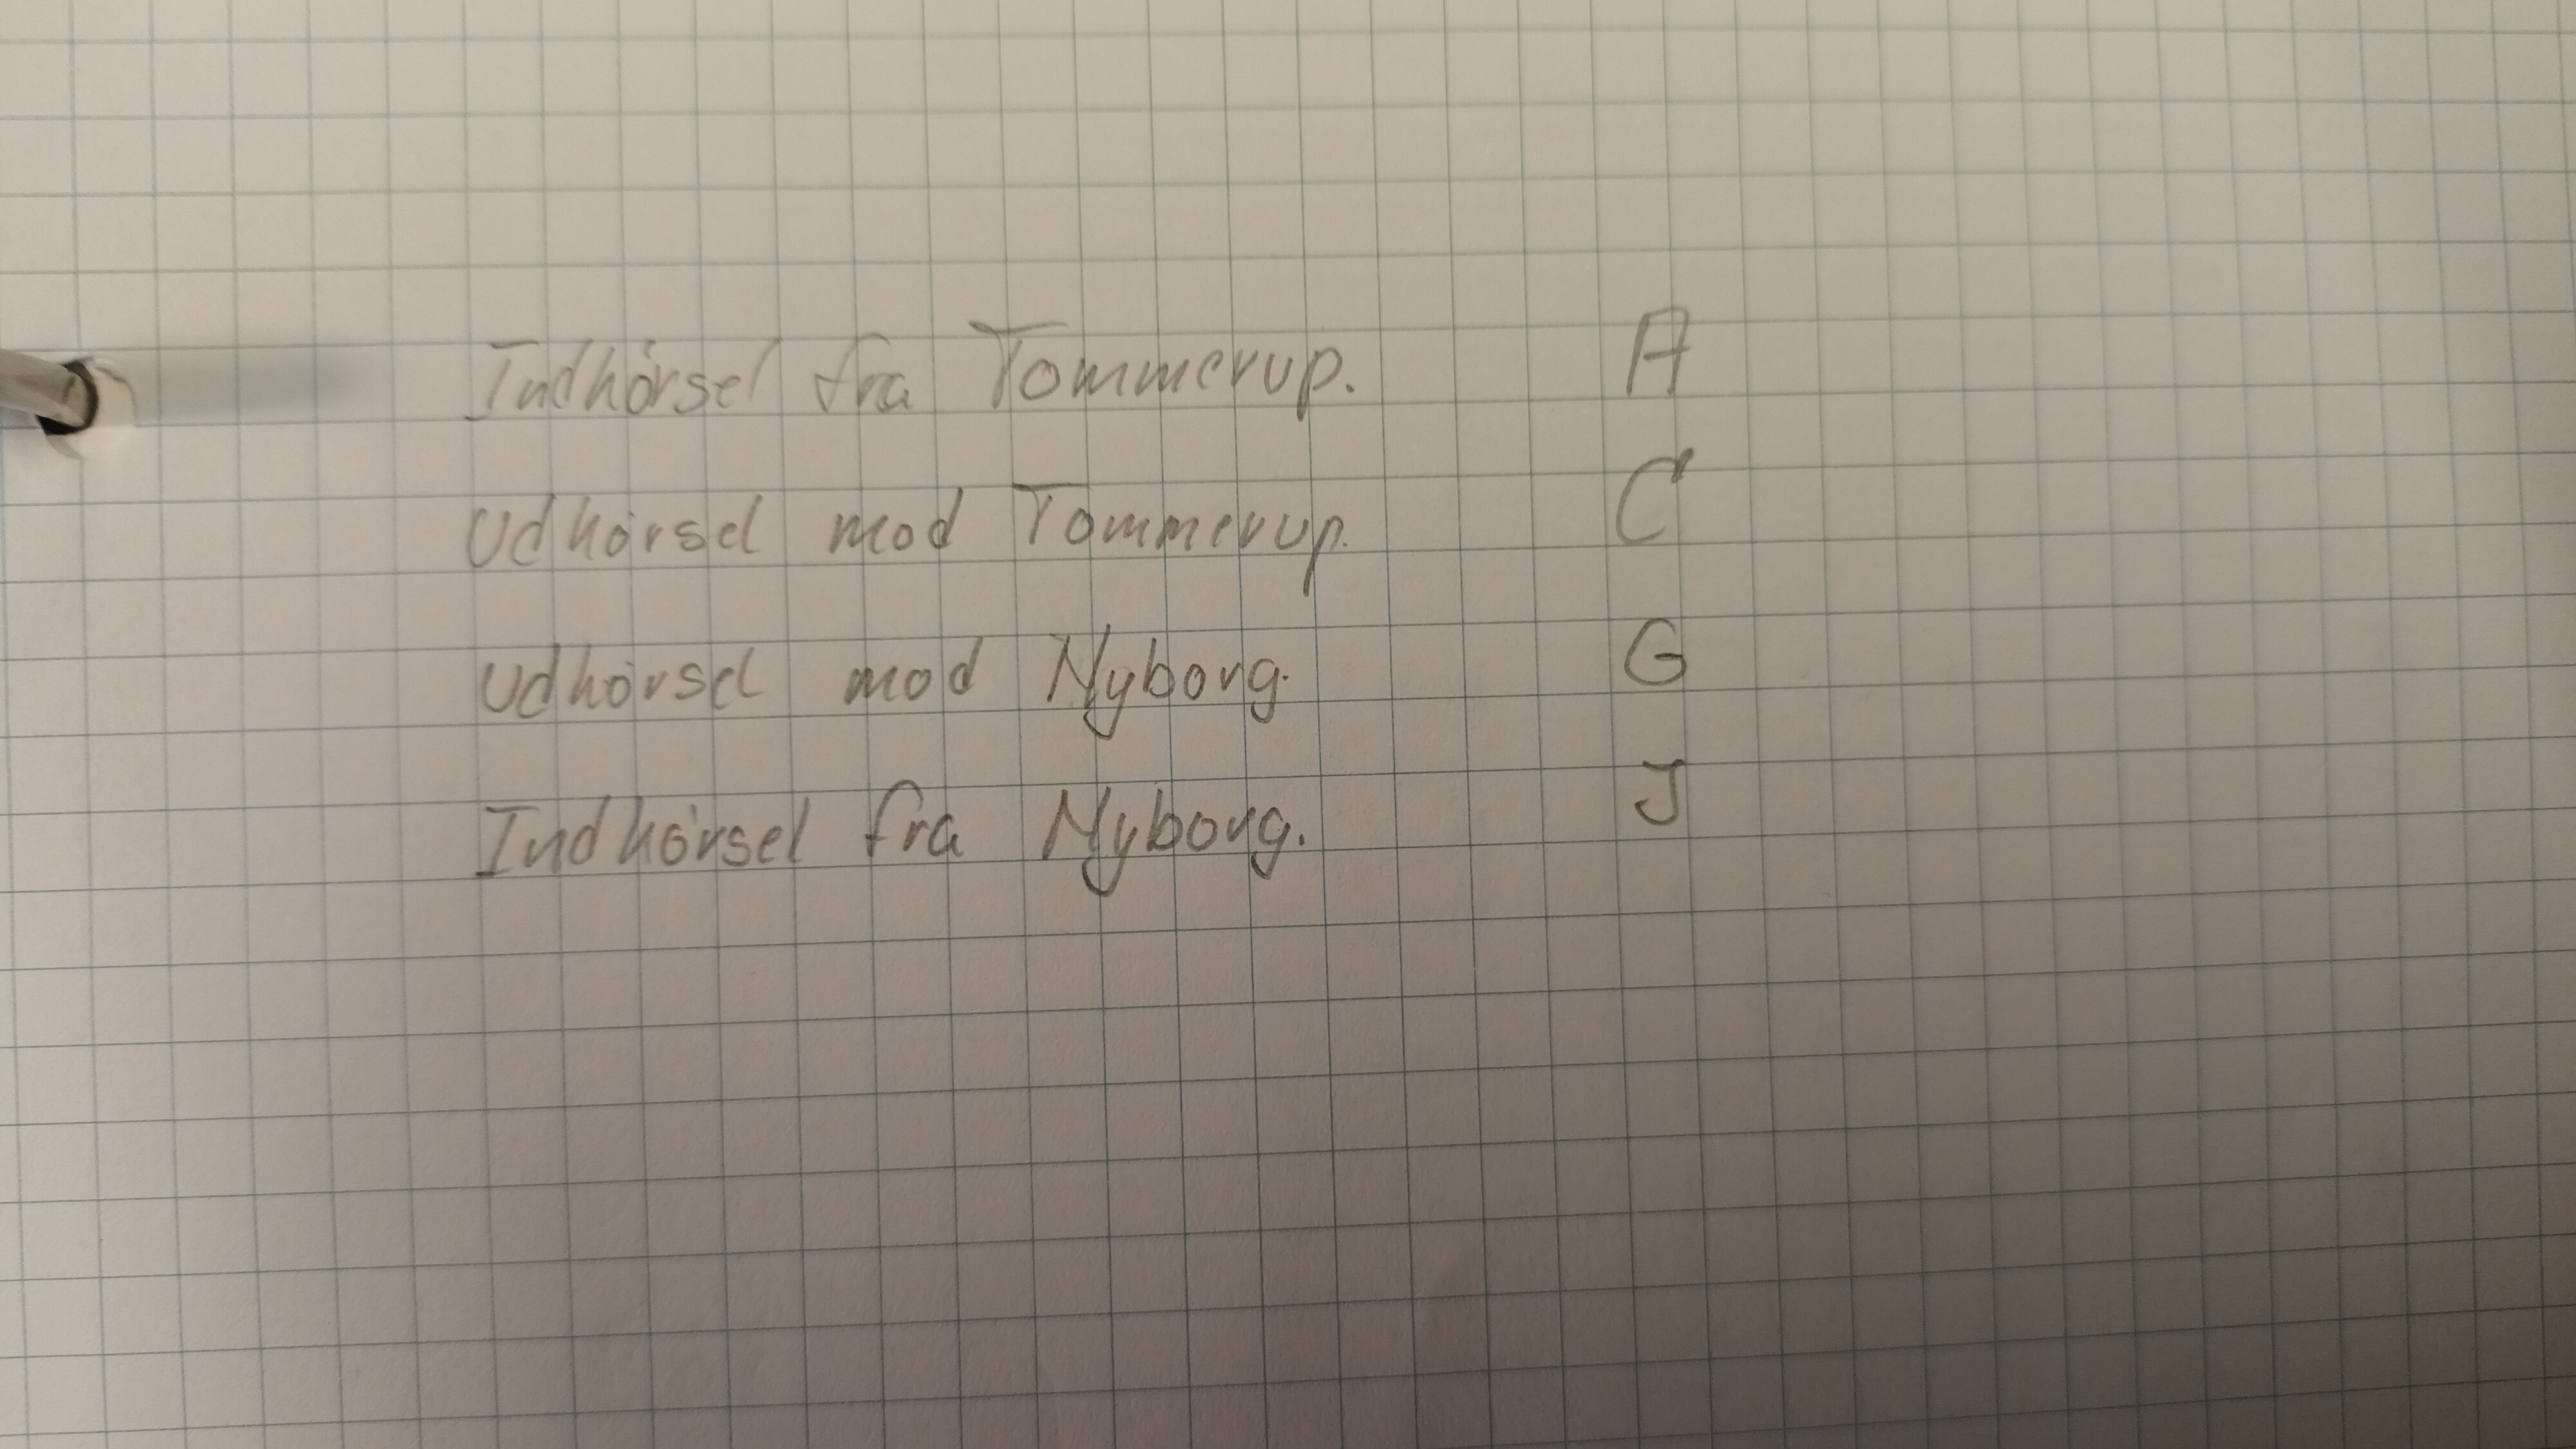 Indkörsel fra Tommerup. A
Udkörsel mod Tommerup. C
Udkörsel mod Nyborg. G
Indkörsel fra Nyborg. J